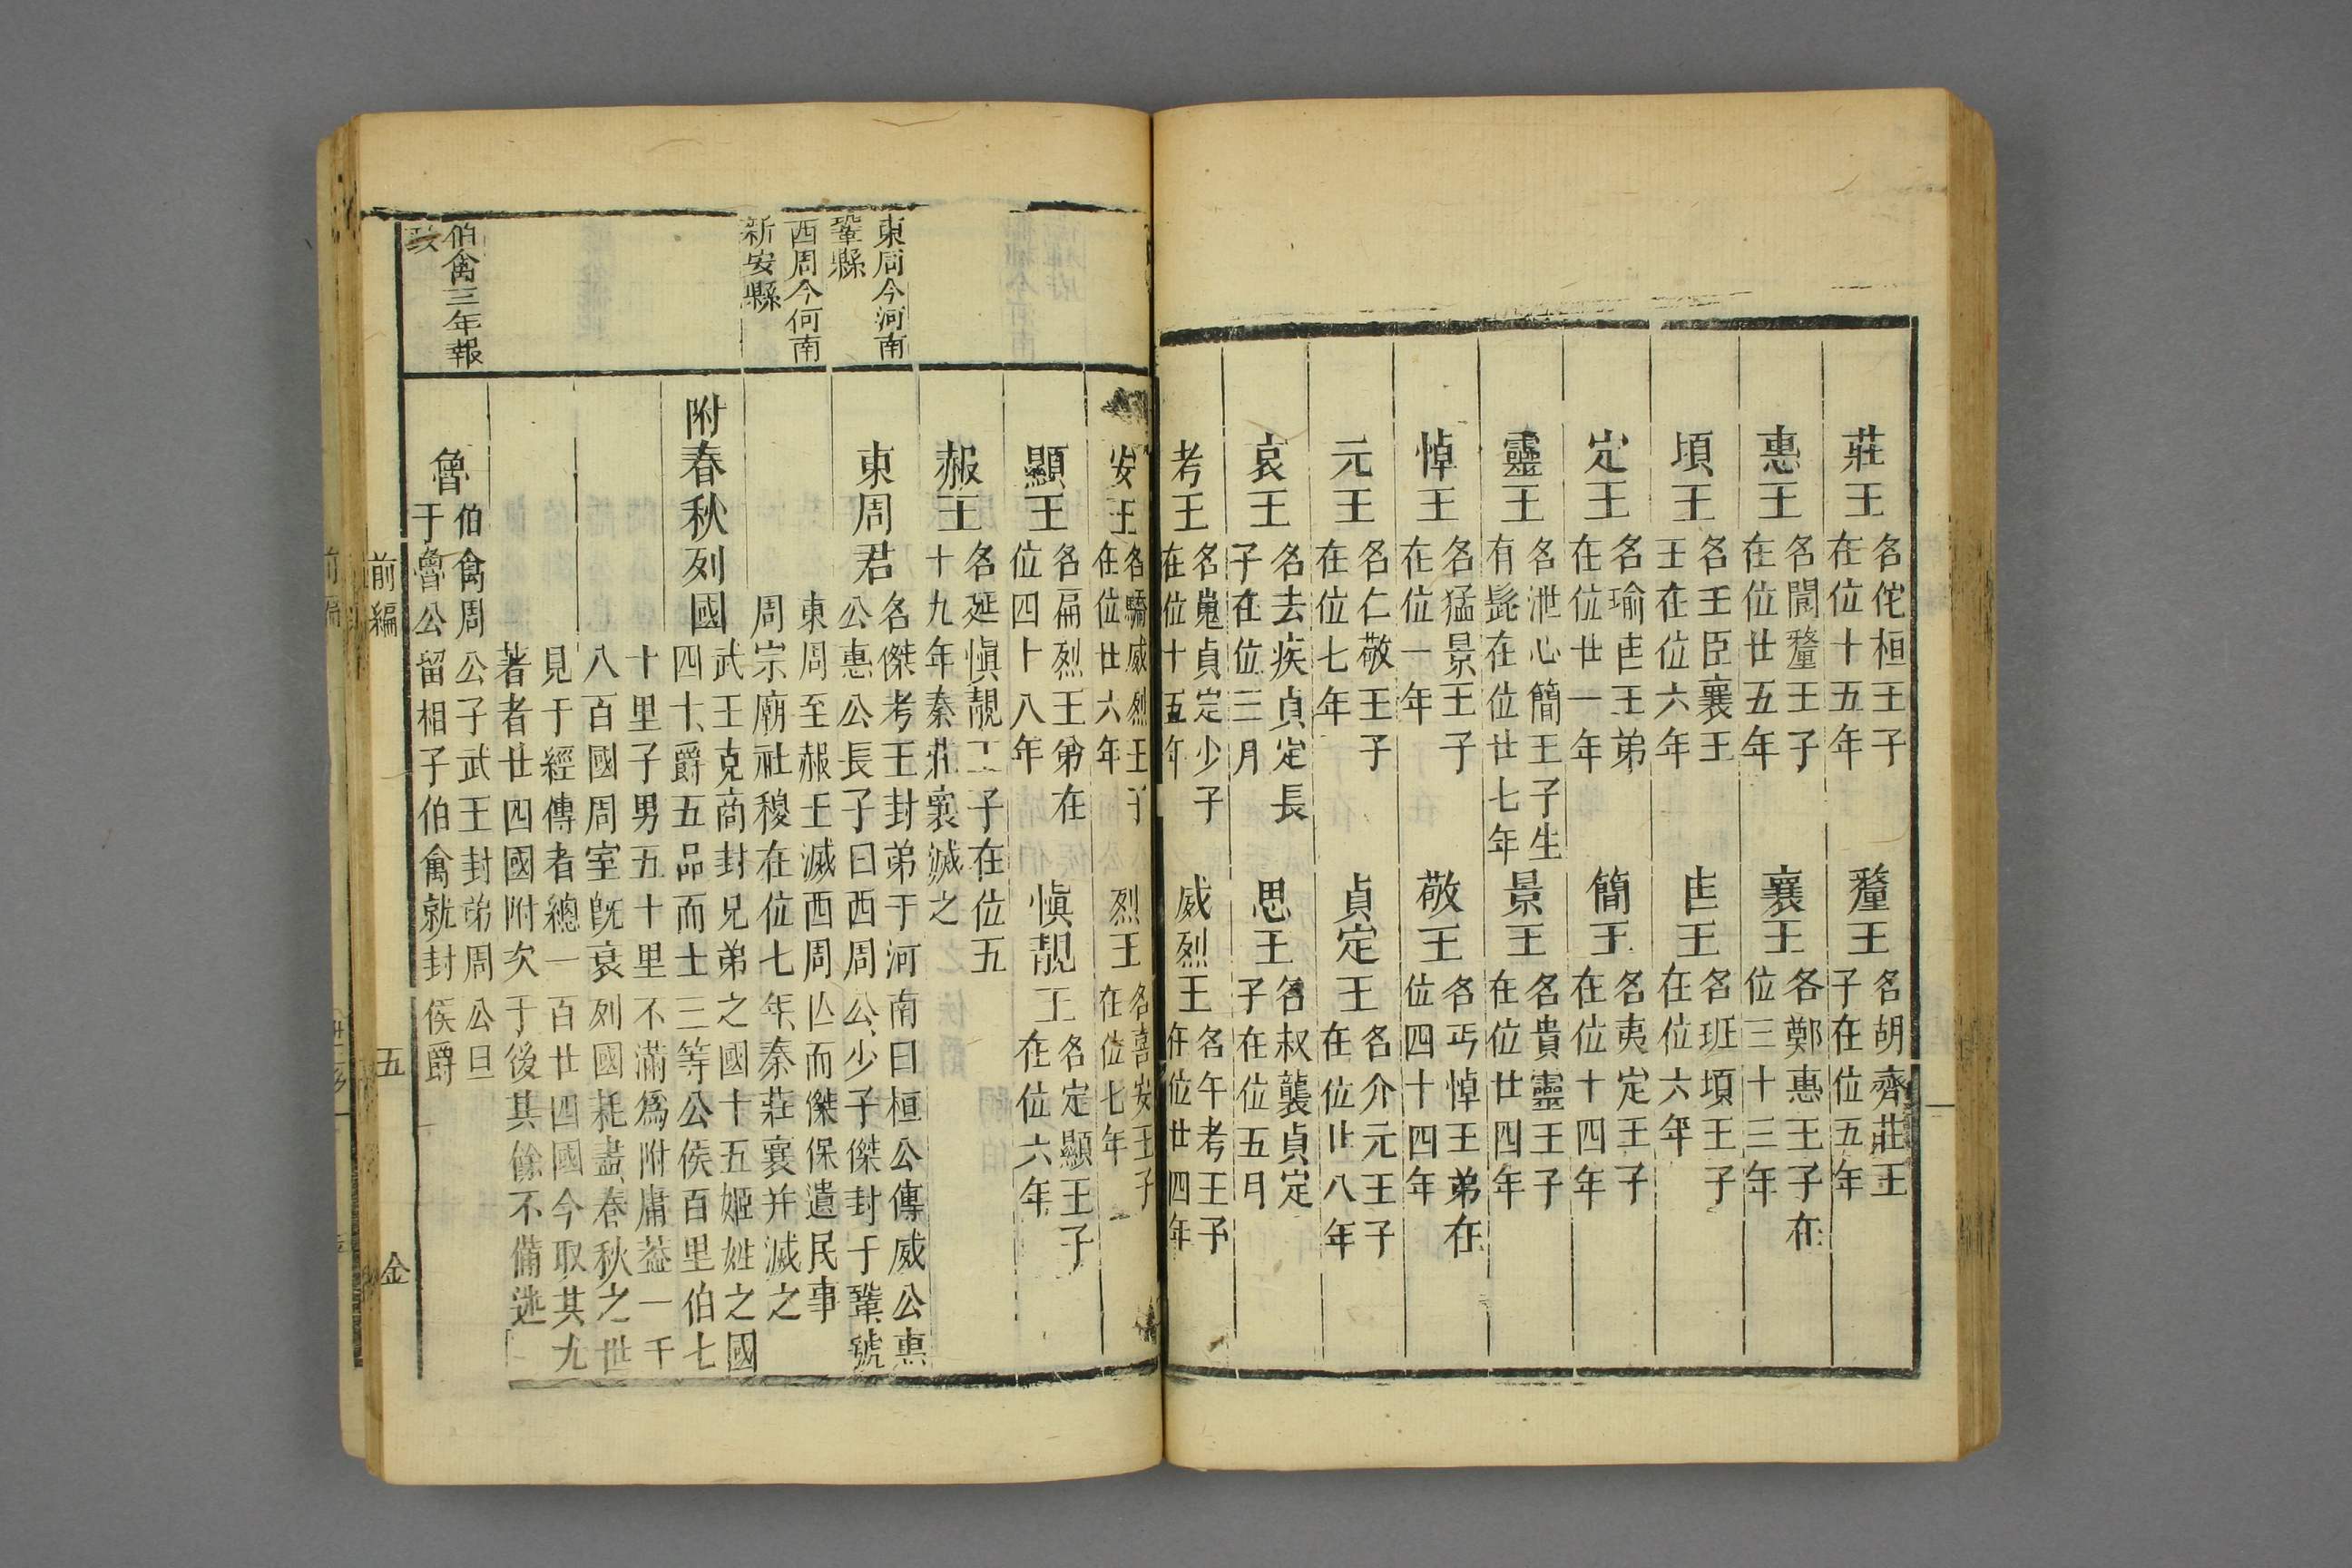 莊王 名佗桓王子在位十五年 釐王 名胡齊莊王子在位五年
惠王 名閬釐王子在位廿五年 襄王 名鄭惠王子在位三十三年
頃王 名王臣襄王王在位六年 𠤷王 名班頃王子在位六年
定王 名瑜𠤷王弟在位廿一年 簡王 名夷定王子在位十四年
靈王 名泄心簡王子生有髭在位廿七年 景王 名貴靈王子在位廿四年
悼王 名猛景王子在位一年 敬王 名丐悼王弟在位四十四年
元王 名仁敬王子在位七年 貞定王 名介元王子在位廿八年
哀王 名去疾貞定長子在位三月 思王 名叔襲貞定子在位五月
考王 名嵬貞定少子在位十五年 威烈王 名午考王子在位廿四年
安王 名驕威烈王子在位廿六年 烈王 名喜安王子在位七年
顯王 名扁烈王弟在位四十八年 愼靚王 名定顯王子在位六年
赧王 名延愼靚王子在位五十九年秦莊襄滅之
東周今河南
鞏縣
東周君 名傑考王封弟于河南曰桓公傳威公惠
公惠公長子曰西周公少子傑封于鞏號
西周今何南
新安縣
東周至赧王滅西周亾而傑保遺民事
周宗廟社稷在位七年秦莊襄并滅之
附春秋列國 武王克商封兄弟之國十五姬姓之國
四十爵五品而士三等公侯百里伯七
十里子男五十里不滿爲附庸葢一千
八百國周室旣衰列國耗盡春秋之世
見于經傳者總一百廿四國今取其九
著者廿四國附次于後其餘不備述
伯禽三年報
政
魯 伯禽周公子武王封弟周公旦
于魯公留相子伯禽就封侯爵
前編 五 金